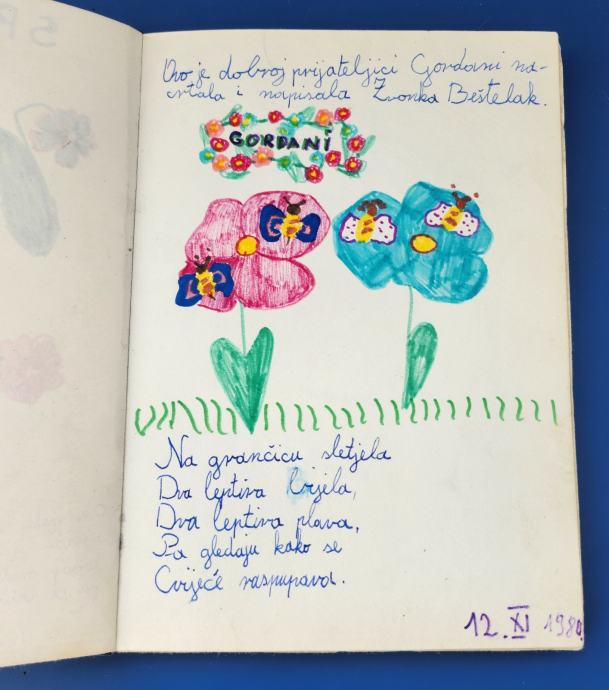 Ovo je dobroj prijateljici Gordani na-
crtala i napisala Zvonka Beštelak.
GORDANI
Na grančicu sletjela
Dva leptira bijela,
Dva leptira plava,
Pa gledaju kako se
Cvijeće raspupava.
12. XI 1980.